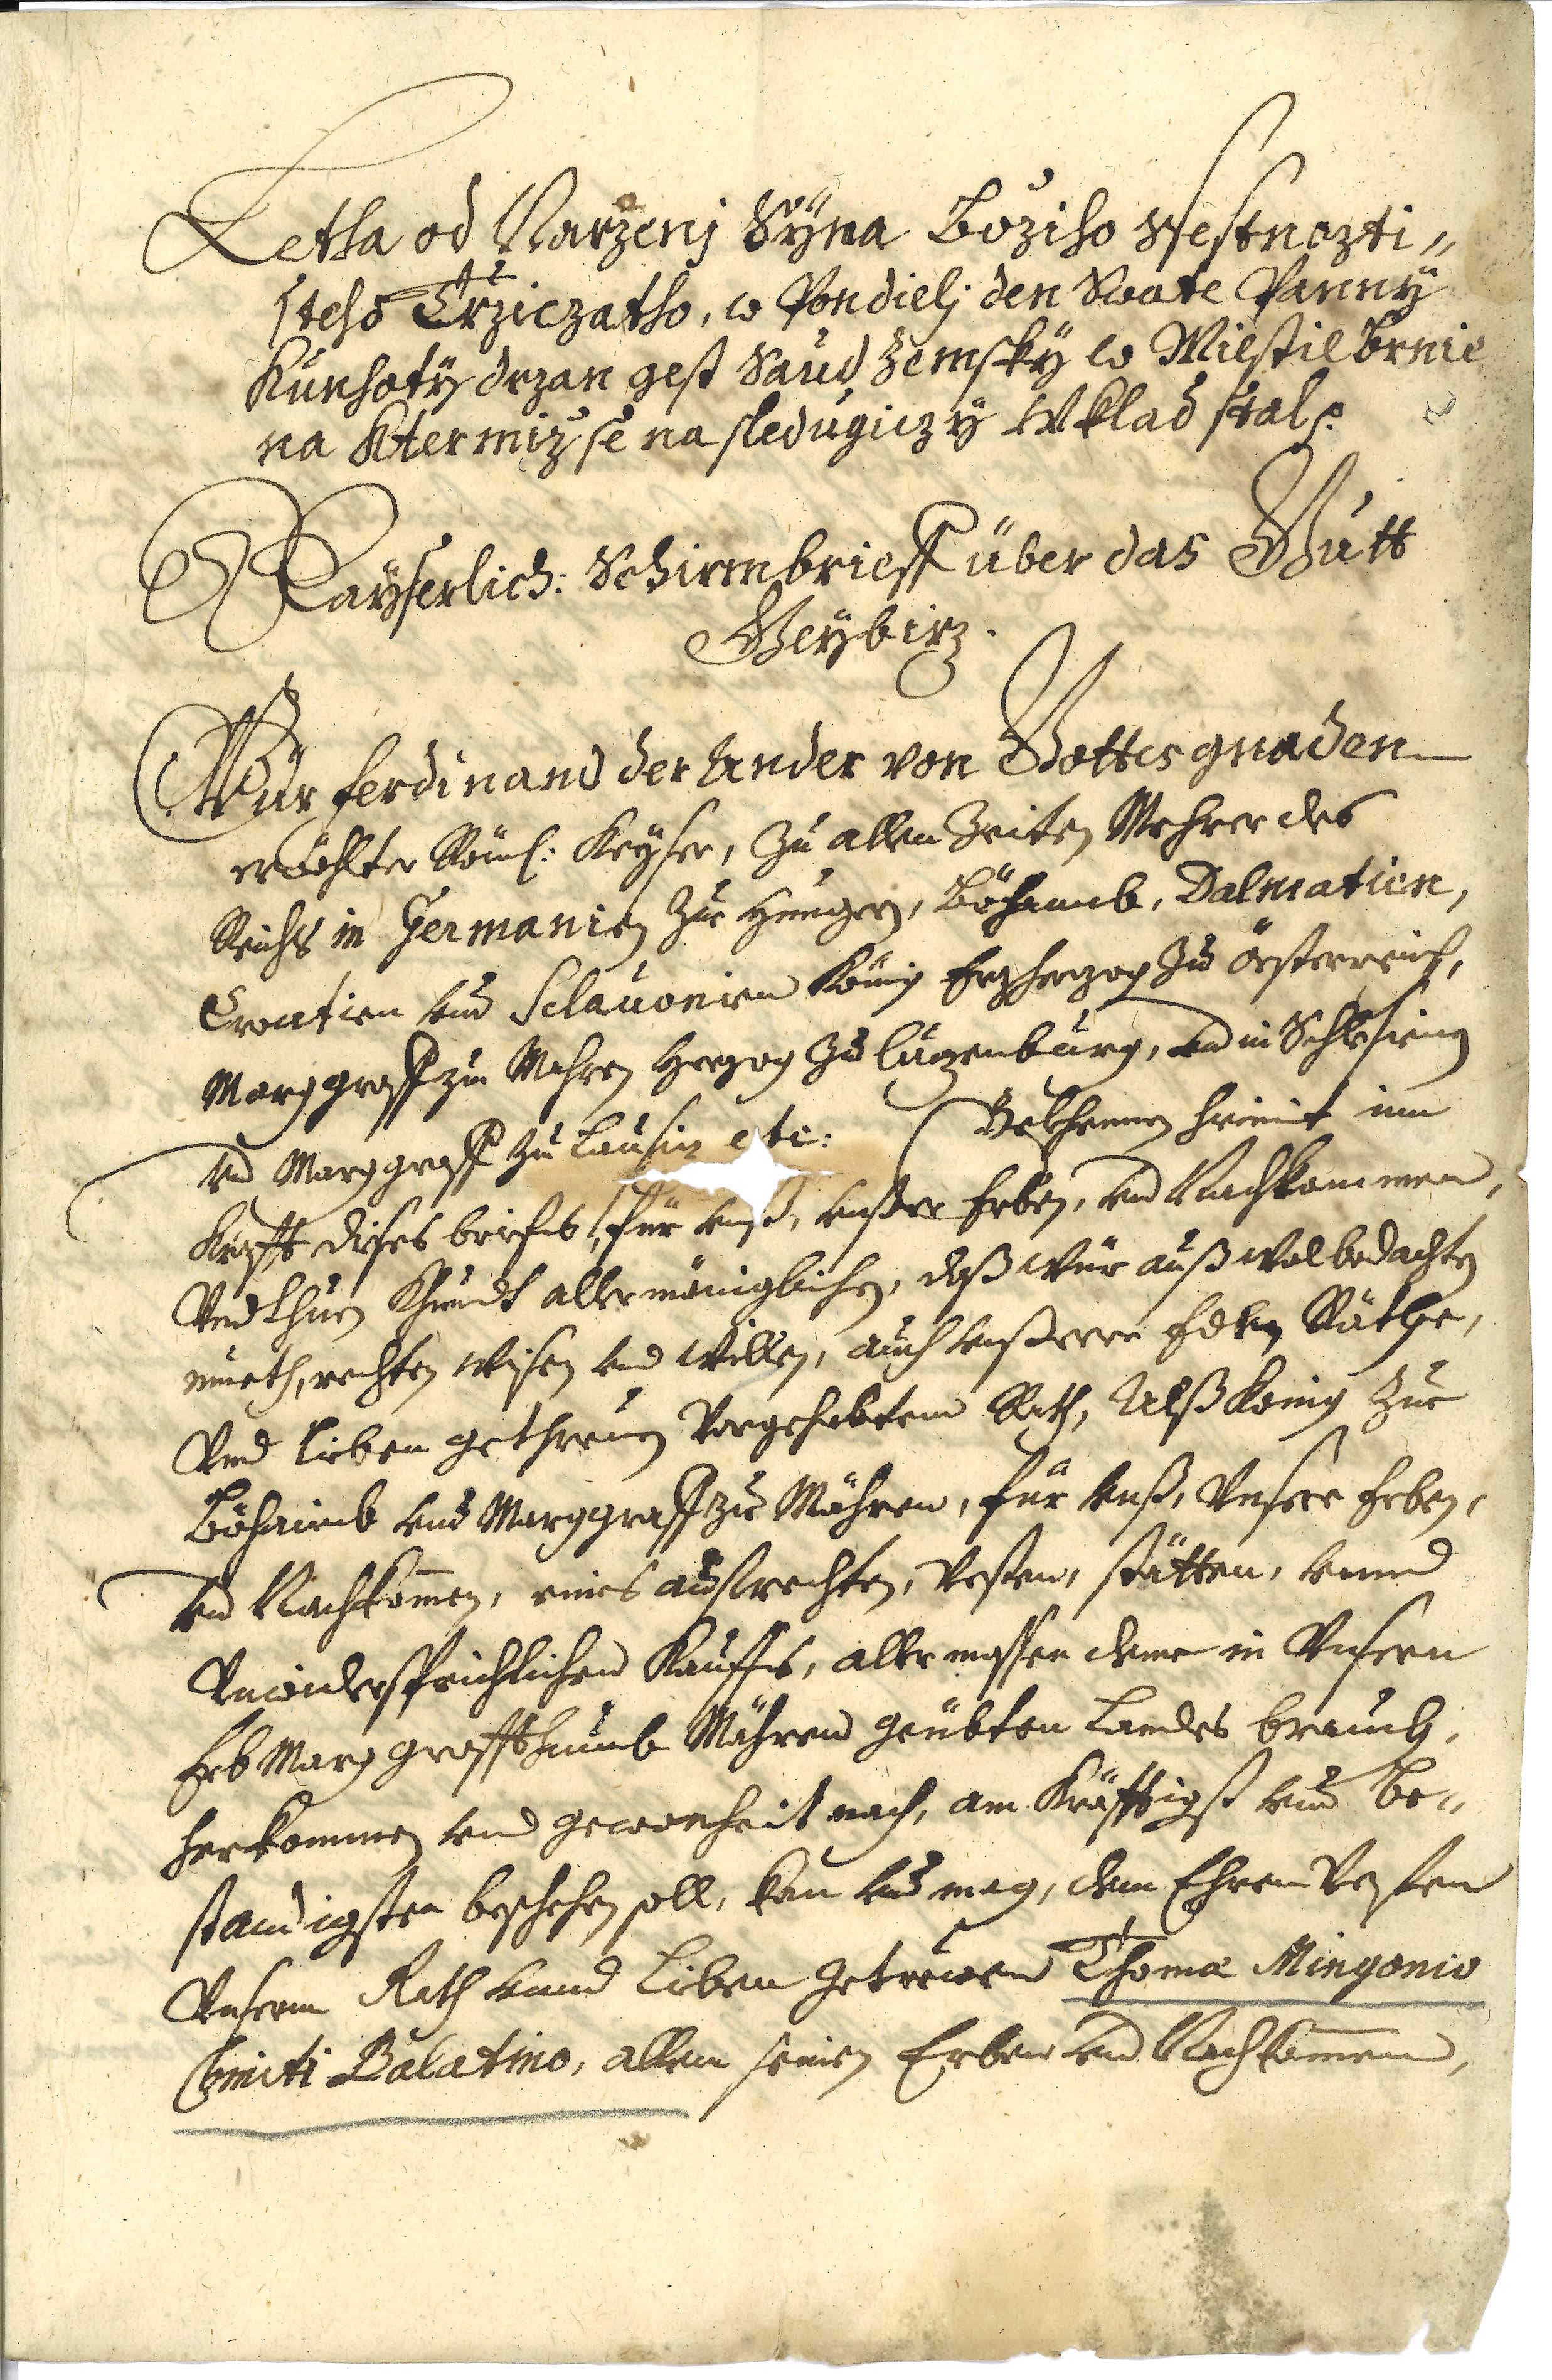 Letha od Narzenj Sÿna Božiho Ssestnozti„
steho Trzicżatho, w Pondielj den Swate Panny
Kunhoty držan gest Saud Zemskÿ w Miestie Brnie
na ktermiz se nasledugiczÿ Wklad stal p.
Kaÿserlich: Schirmbrieff über das Gutt
Geÿbirz.
Wür ferdinand der Ander von Gottes gnaden
erwöhlter Röml: Keÿser, zu allen Zeiten Mehrer des
Reichs in Germanien zue Hungern, Böhaimb, Dalmatien,
Croatien und Sclauonien König Erzherzog zu Össterreich,
Marggraff zu Mähren Herzog zu Lüzenburg, und in Schlesieng
und Marggraff zu Lausiz etc: Bekhennen hiemit inn
Krafft dises briefs, für unß, unßere Erben, und Nachkommen,
Und thuen khundt allermäniglichen, daß wür auß wolbedachten
mueth, rechten wißen und willen, auch unßerer Edlen Räthe,
Und lieben gethreuen Vorgehabtem Rath, Alß König zue
Böhaimb und Marggraff zue Mähren, für unß, Unsere Erben,
und Nachkom̄en, eines aufrechten, Vesten, stätten, unnd
Unwidersprechlichen Kauffs, allermassen deme in Unsern
Erb Marggraffthumb Mähren geübten Landes brauch,
herkommen und gewonheit nach, am Kräfftigst und be„
standigsten beschehen soll, kan und mag, dem Ehrn Vesten
Unserm Rath unnd Lieben Getrewen Thomæ Mingonio
Comiti Palatino, allen seinen Erben und Nachkom̄en,